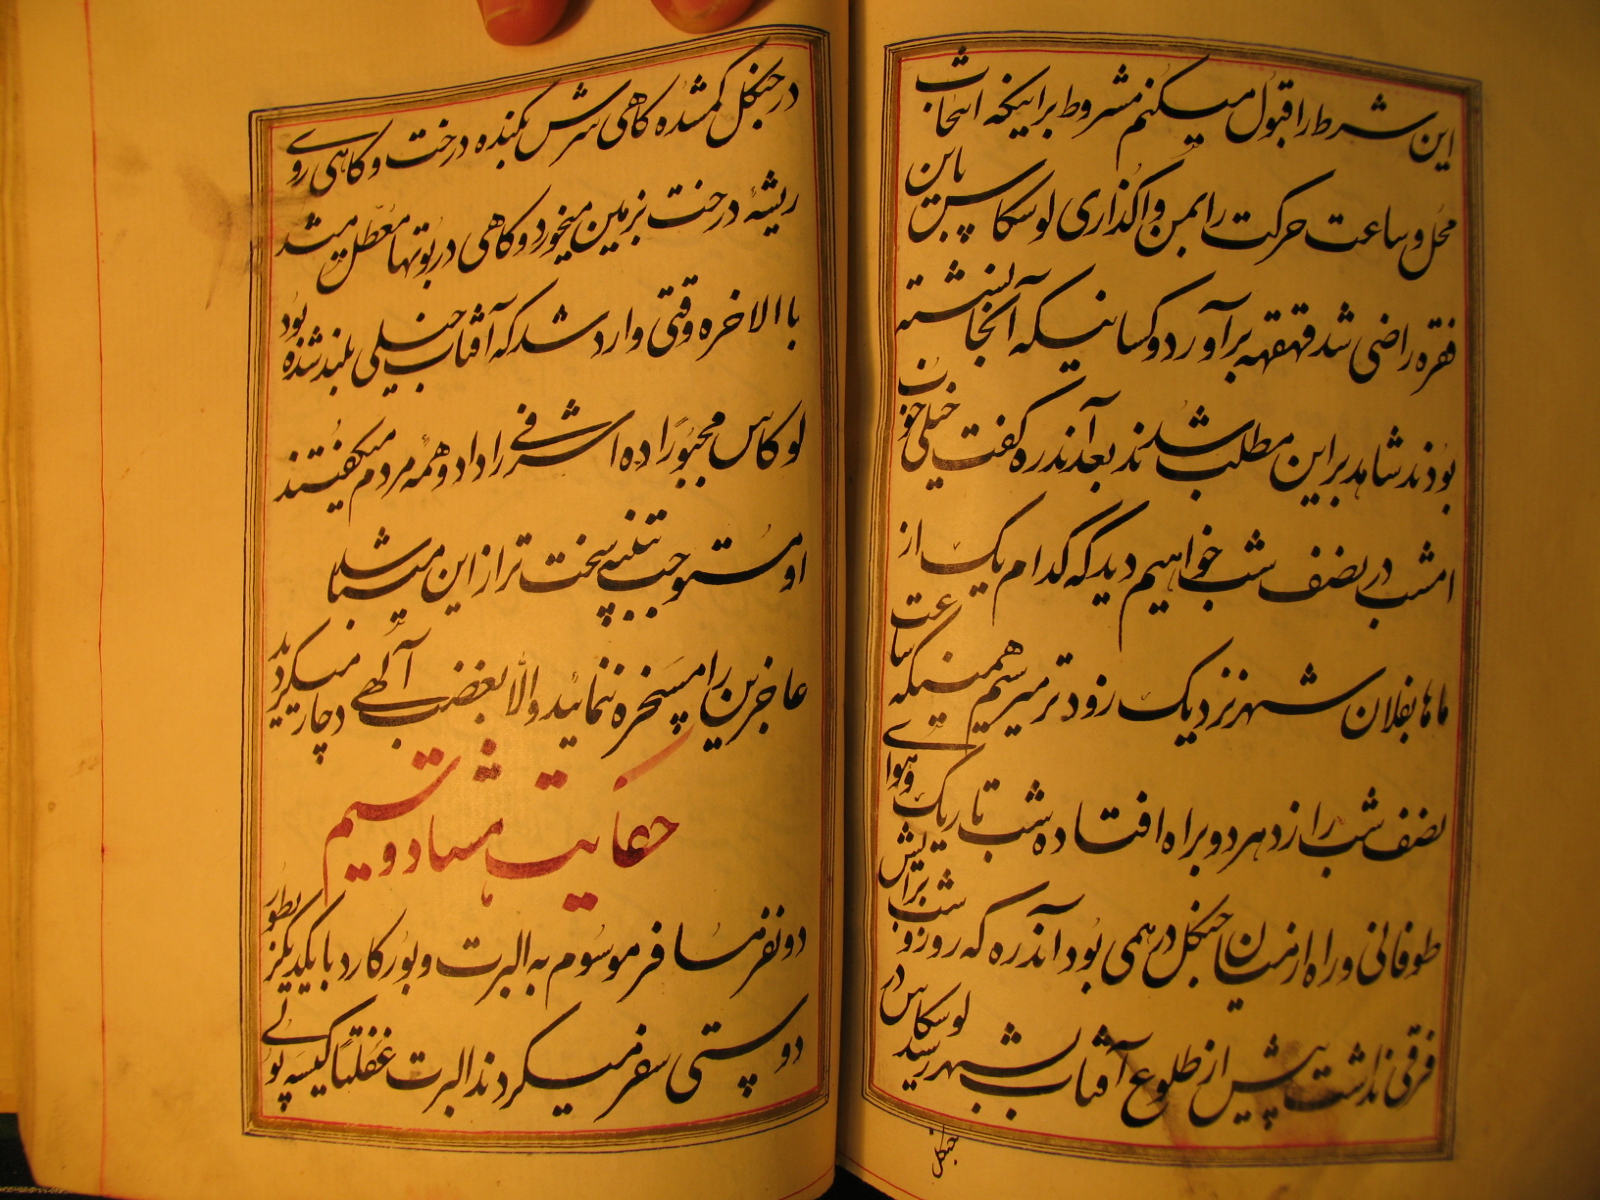 این شرط را قبول میکنم مشروط براینکه انتخاب
محل و ساعت حرکت را بمن واگذاری لوسکاس باین
فقره راضی شد قهقهه برآورد و کسانیکه آنجا نشسته
بودند شاهد براین مطلب شدند بعد آندره گفت خیلی خوب
امشب در نصف شب خواهیم دید که کدام یک از
ماها بفلان شهر نزدیک زودتر میرسیم همینکه ساعت
نصف شب را زد هر دو براه افتاده شب تاریک و هوا
طوفانی و راه از میان جنکل درهمی بود آندره که روز و شب برایش
فرقی نداشت پیش از طلوع آفتاب بشهر رسید لوسکاس در
جنکل
در جنکل کمشده کاهی سرش بکنده درخت و کاهی روی
ریشهٔ درخت بزمین میخورد و کاهی در بوتها معطل میشد
باالاخره وقتی وارد شد که آفتاب خیلی بلند شده بود
لوکاس مجبوراً ده اشرفی را داد و همه مردم میکفتند
او مستوجب تنبیه سخت تر از این میباشد
عاجزین را مسخره ننمائید والا بغضب آلهی دچار میکردید
حکایت هشتاد و سیم
دو نفر مسافر موسوم به البرت و بورکارد با یکدیکر بطور
دوستی سفر میکردند البرت غفلتاً کیسه پولی